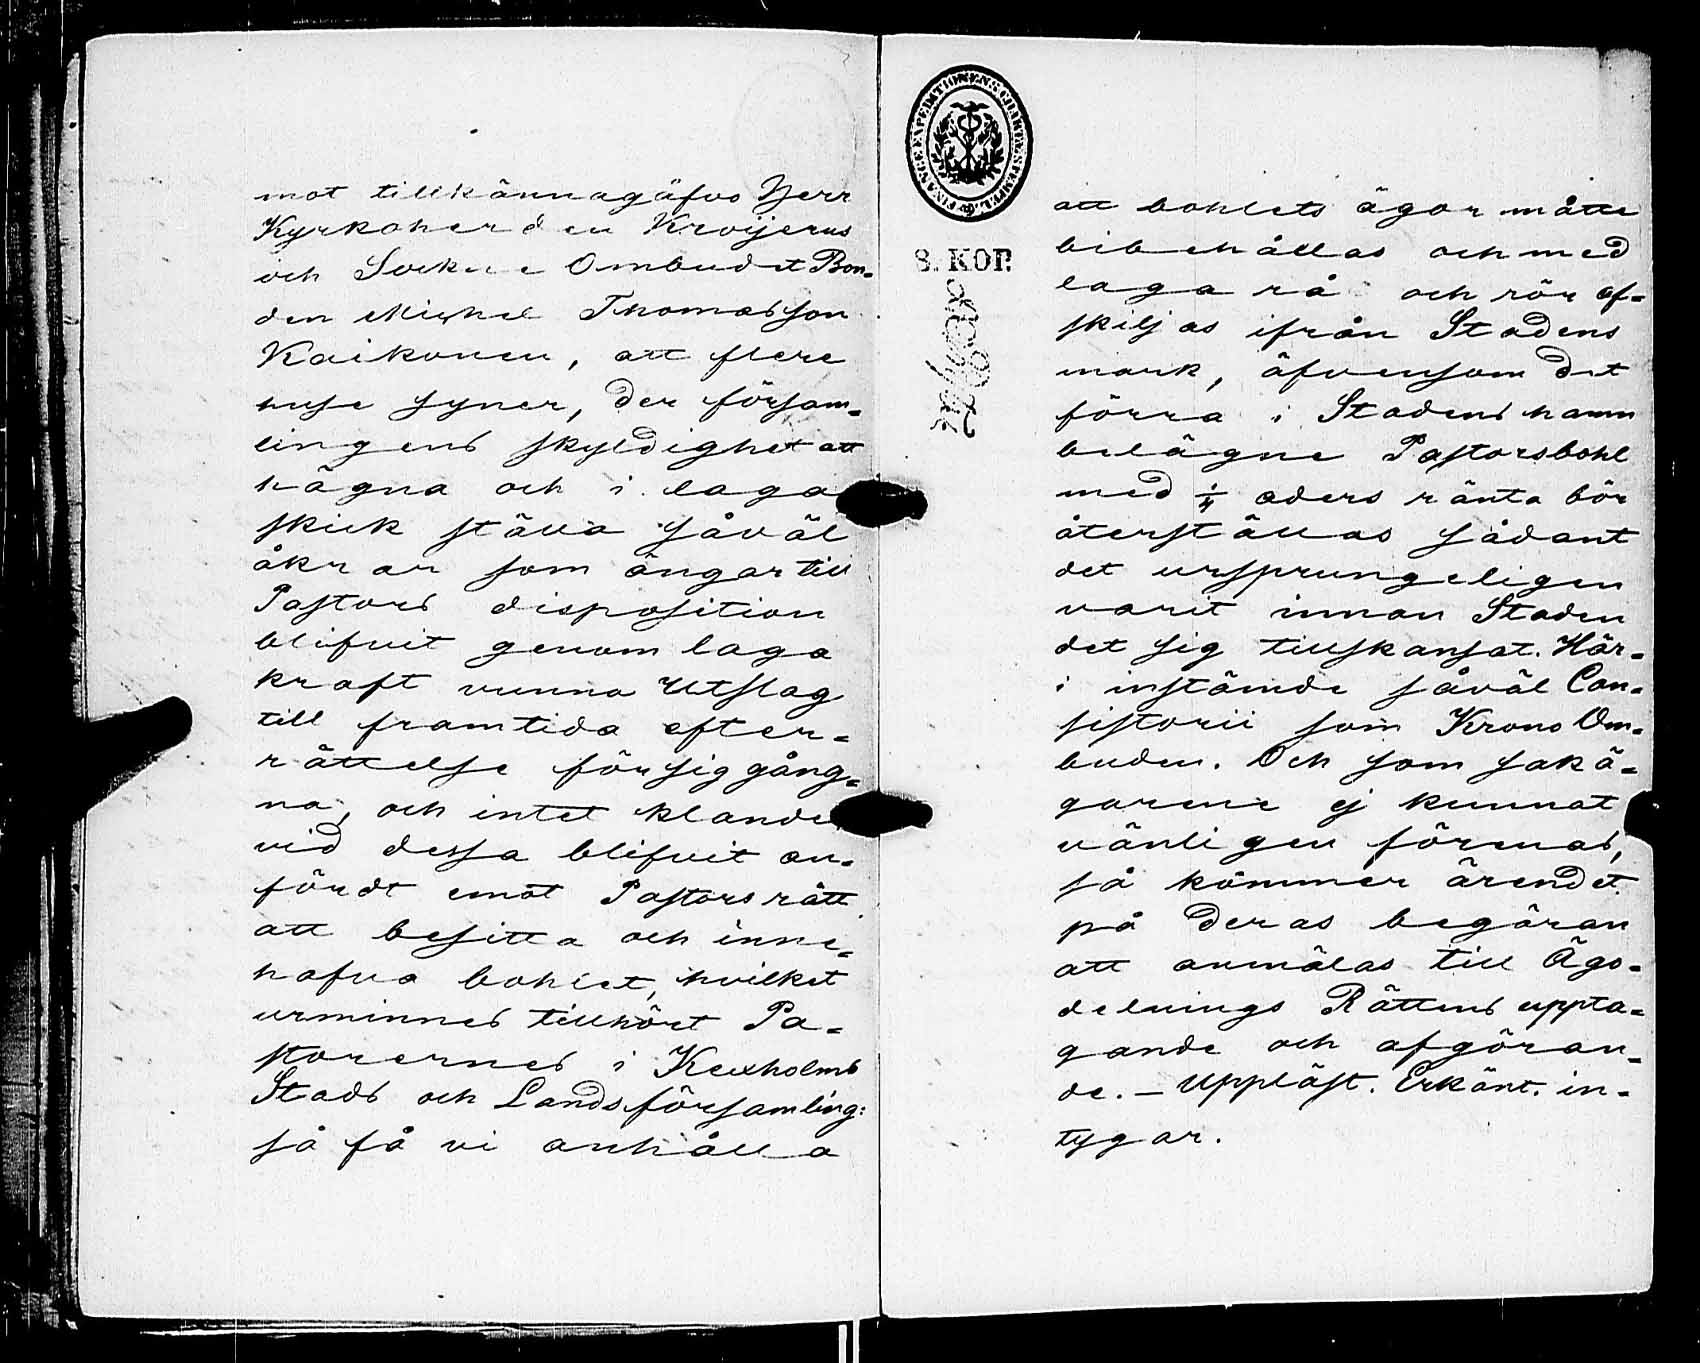 mot tillkännagäfvo Herr
Kyrkoherden Kroijerus
och Sockne Ombudet Bon-
den Michel Thomasson
Kaikonen, att flere
huse syner, der försam-
lingens skyldighet att
hägna och i laga
skick ställa såväl
åkrar som ängar till
Pastors disposition
blifvit genom laga
kraft vunna Utslag
till framtida efter-
rättelse försiggång-
na, och intet klander
vid dessa blifvit an-
fördt emot Pastors rätt
att besitta och inne-
hafva bohlet, hvilket
urminnes tillhört Pa-
storernes i Kexholms
Stads och Landsförsamling:
så få vi anhålla
FINANCE EXPEDITIONENS CHARTÆ STEMPEL
8. KOP.
att bohlets ägor måtte
bibehållas och med
laga rå och rör af-
skiljas ifrån Stadens
mark, äfvensom det
förra i Stadens hamn
belägne Pastorsbohl
med 1/4 aders ränta bör
återställas sådant
det ursprungeligen
varit innan Staden
det sig tillskansat. Här-
i instämde såväl Con-
sistorii som Krono Om-
buden. Och som sakä-
garene ej kunnat
vänligen förenas,
så kommer ärendet
på deras begäran
att anmälas till Ägo-
delnings Rättens uppta-
gande och afgöran-
de. – Uppläst. Erkänt. in-
tygar.